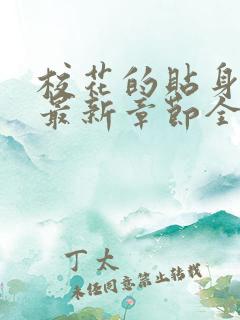 校花的贴身
最新章节全
丁太
未经同意禁止转载